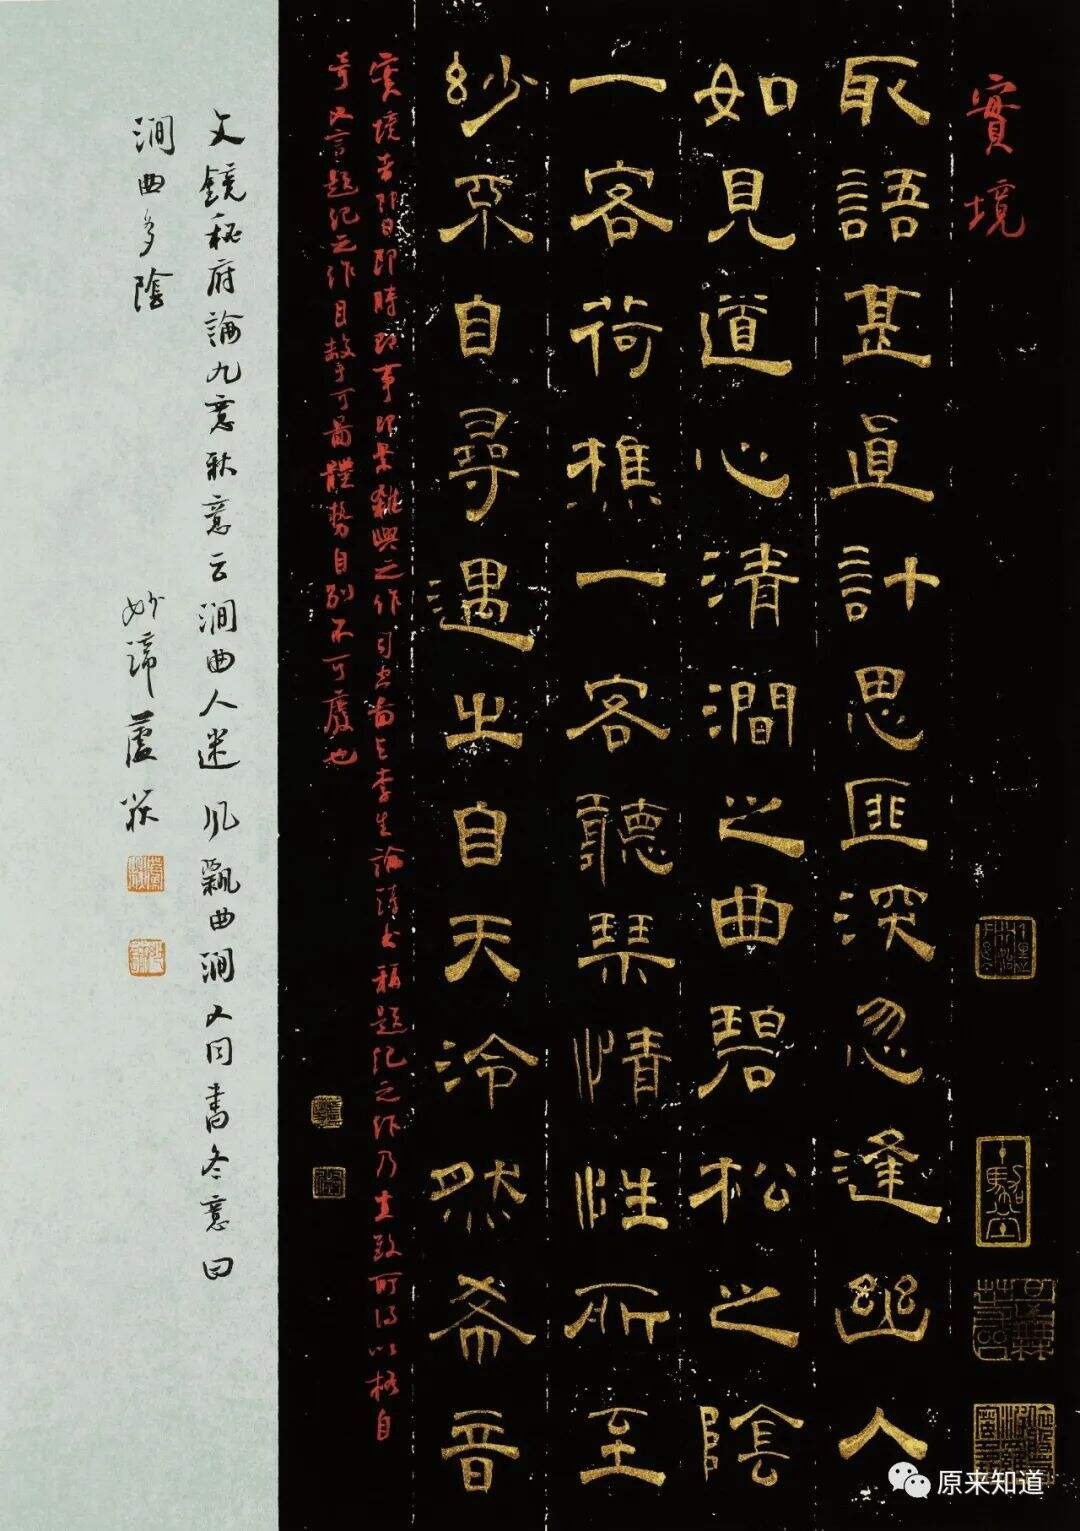 實境
取語甚直計思匪深忽逢幽人
如見道心清澗之曲碧松之陰
一客荷樵一客聽琴情性所至
妙不自尋遇之自天泠然希音
實境者即日即時即事即景雜興之作司空圖與李生論詩書稱題紀之作乃直致所得以格自
奇又言題紀之作目擊可圖體勢自別不可廢也
文鏡秘府論九意秋意云澗曲人迷風飄曲澗又同書冬意曰
澗曲多陰
妙諦
原来知道